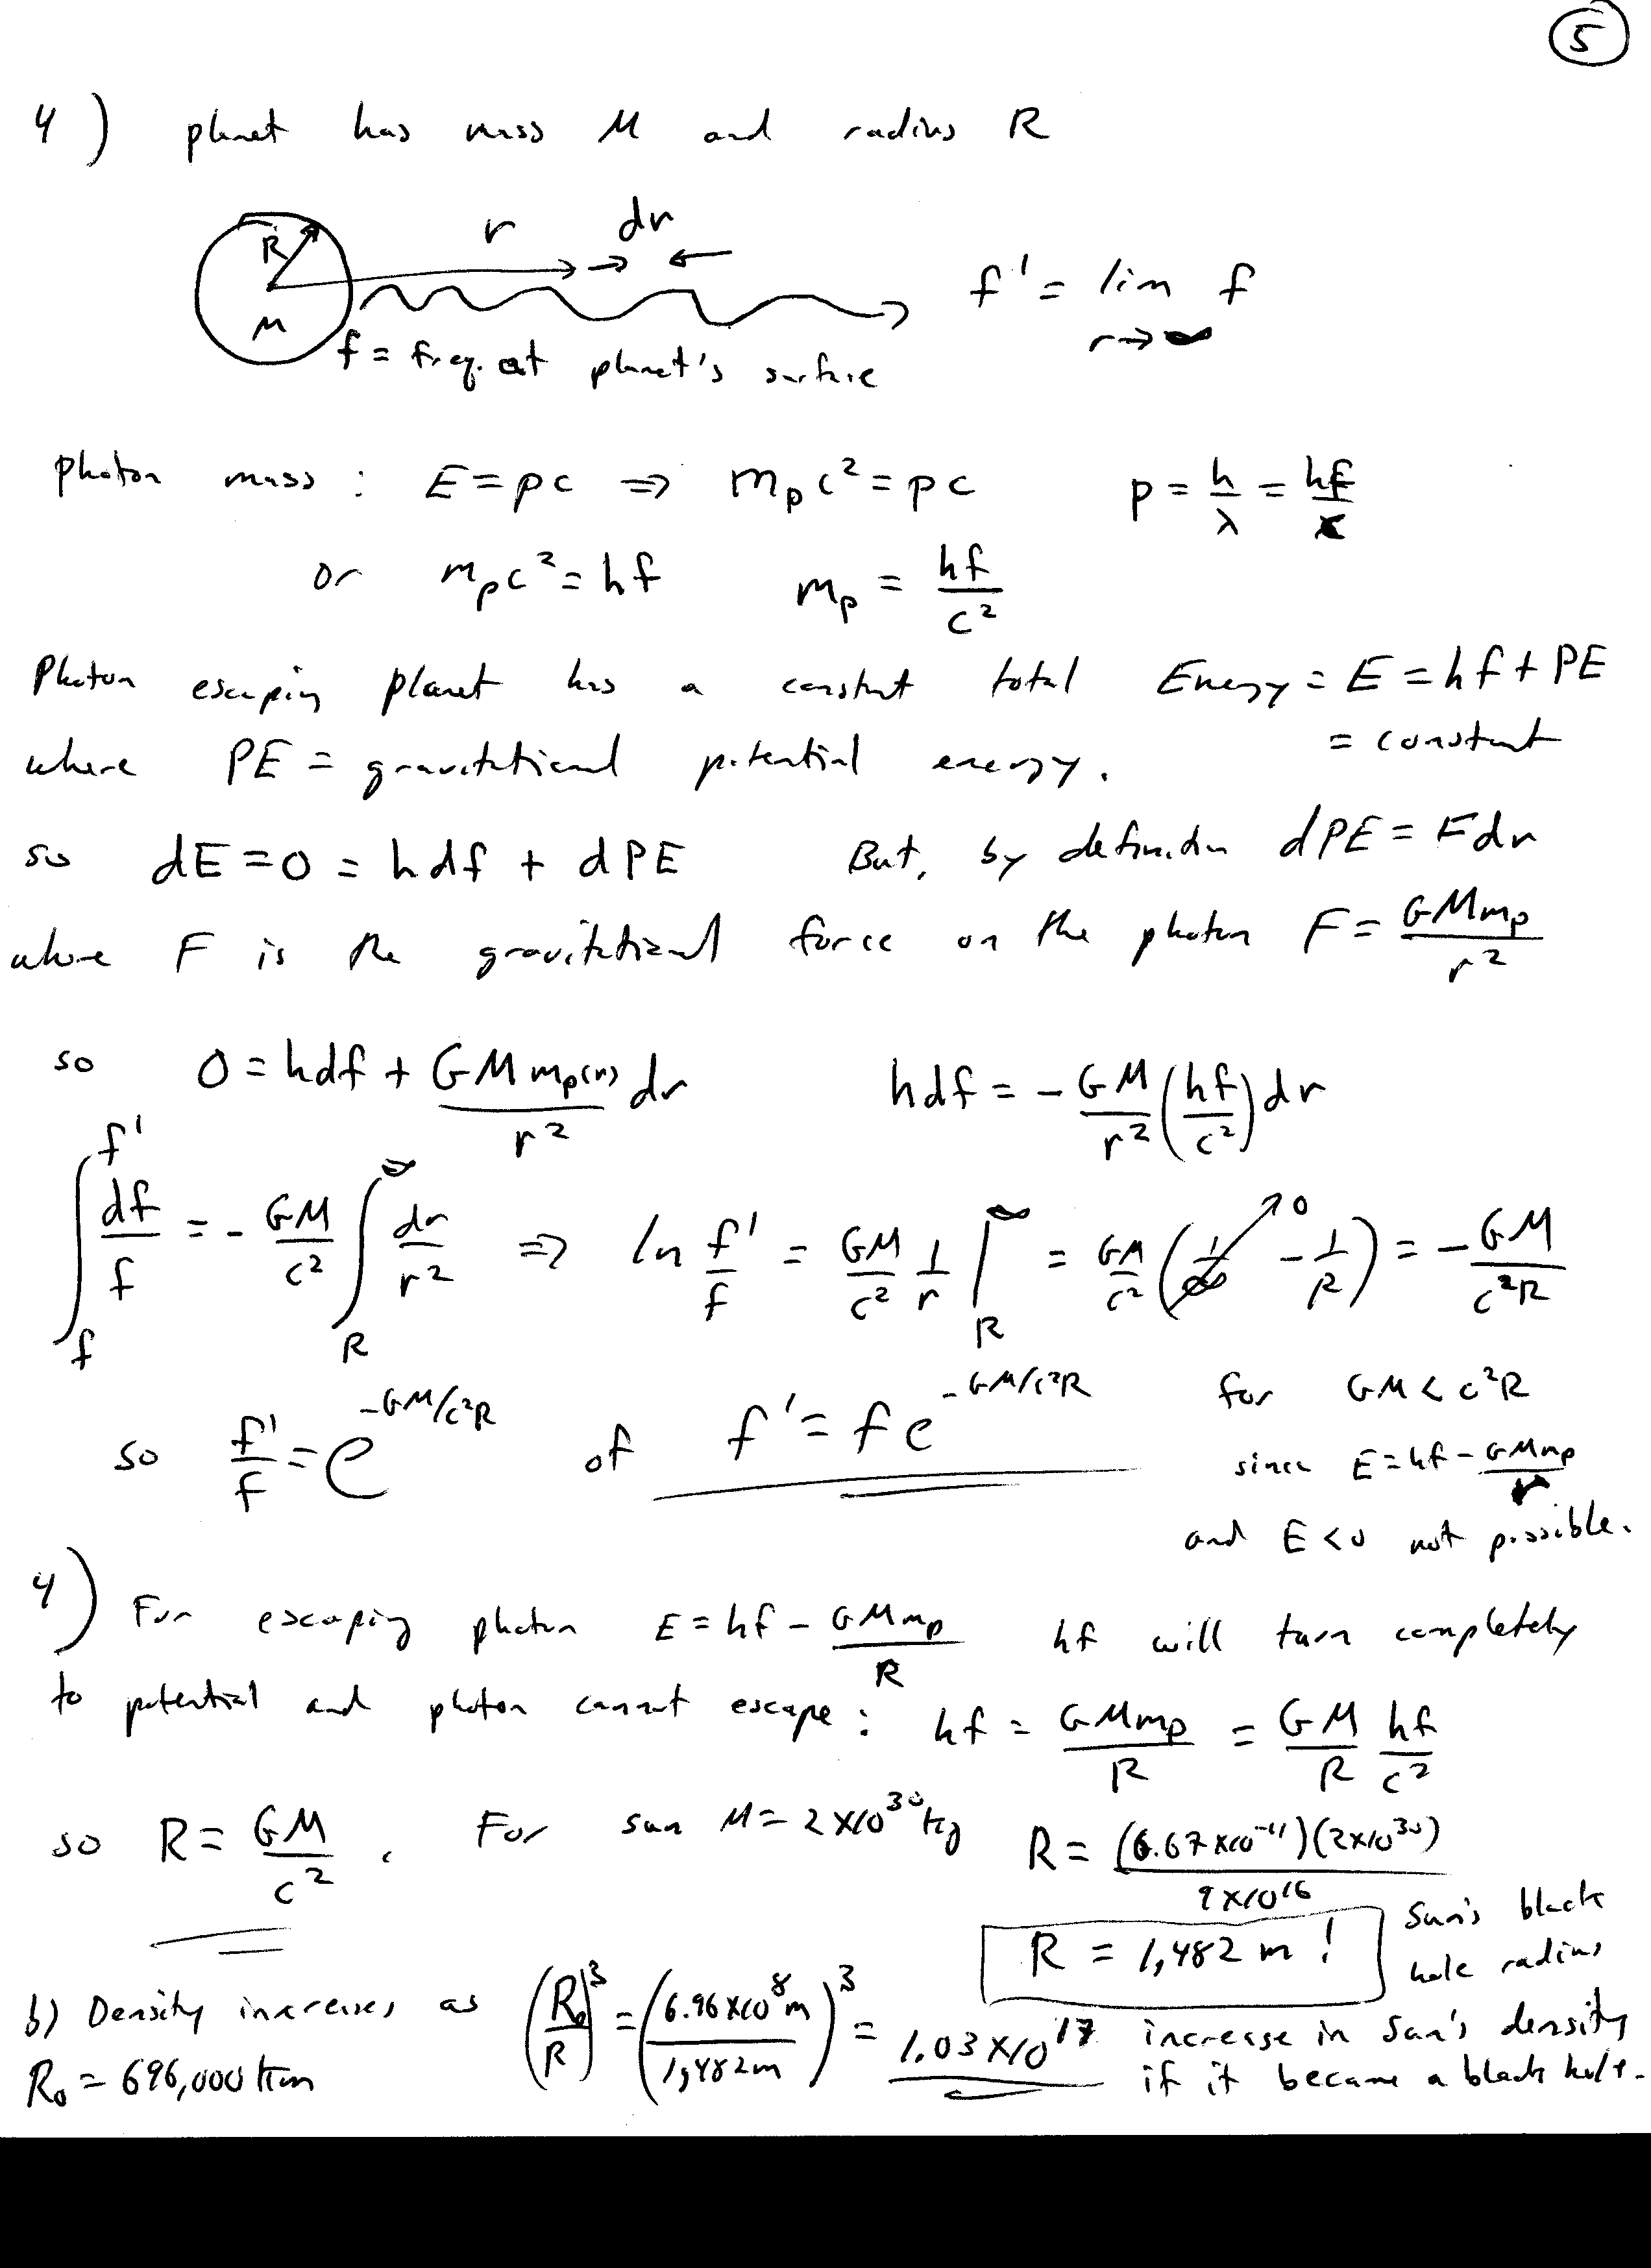 5
4) planet has mass M and radius R
R M r dr f' = lim f r→∞
f = freq. at planet's surface
photon mass : E = pc ⇒ m_p c² = pc p = h/λ = hf/c
or m_p c² = hf m_p = hf/c²
Photon escaping planet has a constant total Energy = E = hf + PE
where PE = gravitational potential energy. = constant
so dE = 0 = hdf + dPE But, by definition dPE = Fdr
where F is the gravitational force on the photon F = GMm_p/r²
so 0 = hdf + GMm_p(r)/r² dr hdf = -GM/r² (hf/c²) dr
∫_f^f' df/f = -GM/c² ∫_R^∞ dr/r² ⇒ ln f'/f = GM/c² 1/r |_R^∞ = GM/c² (1/∞ →0 - 1/R) = -GM/c²R
so f'/f = e^(-GM/c²R) of f' = f e^(-GM/c²R) for GM < c²R
since E = hf - GMm_p/r
and E < 0 not possible.
4) For escaping photon E = hf - GMm_p/R hf will turn completely
to potential and photon cannot escape : hf = GMm_p/R = GM/R hf/c²
so R = GM/c² . For sun M = 2×10³⁰ kg R = (6.67×10⁻¹¹)(2×10³⁰)/9×10¹⁶
R = 1,482 m ! Sun's black hole radius
b) Density increases as (R₀/R)³ = (6.96×10⁸m/1,482m)³ = 1.03×10¹⁷ increase in Sun's density
R₀ = 696,000 km if it became a black hole.